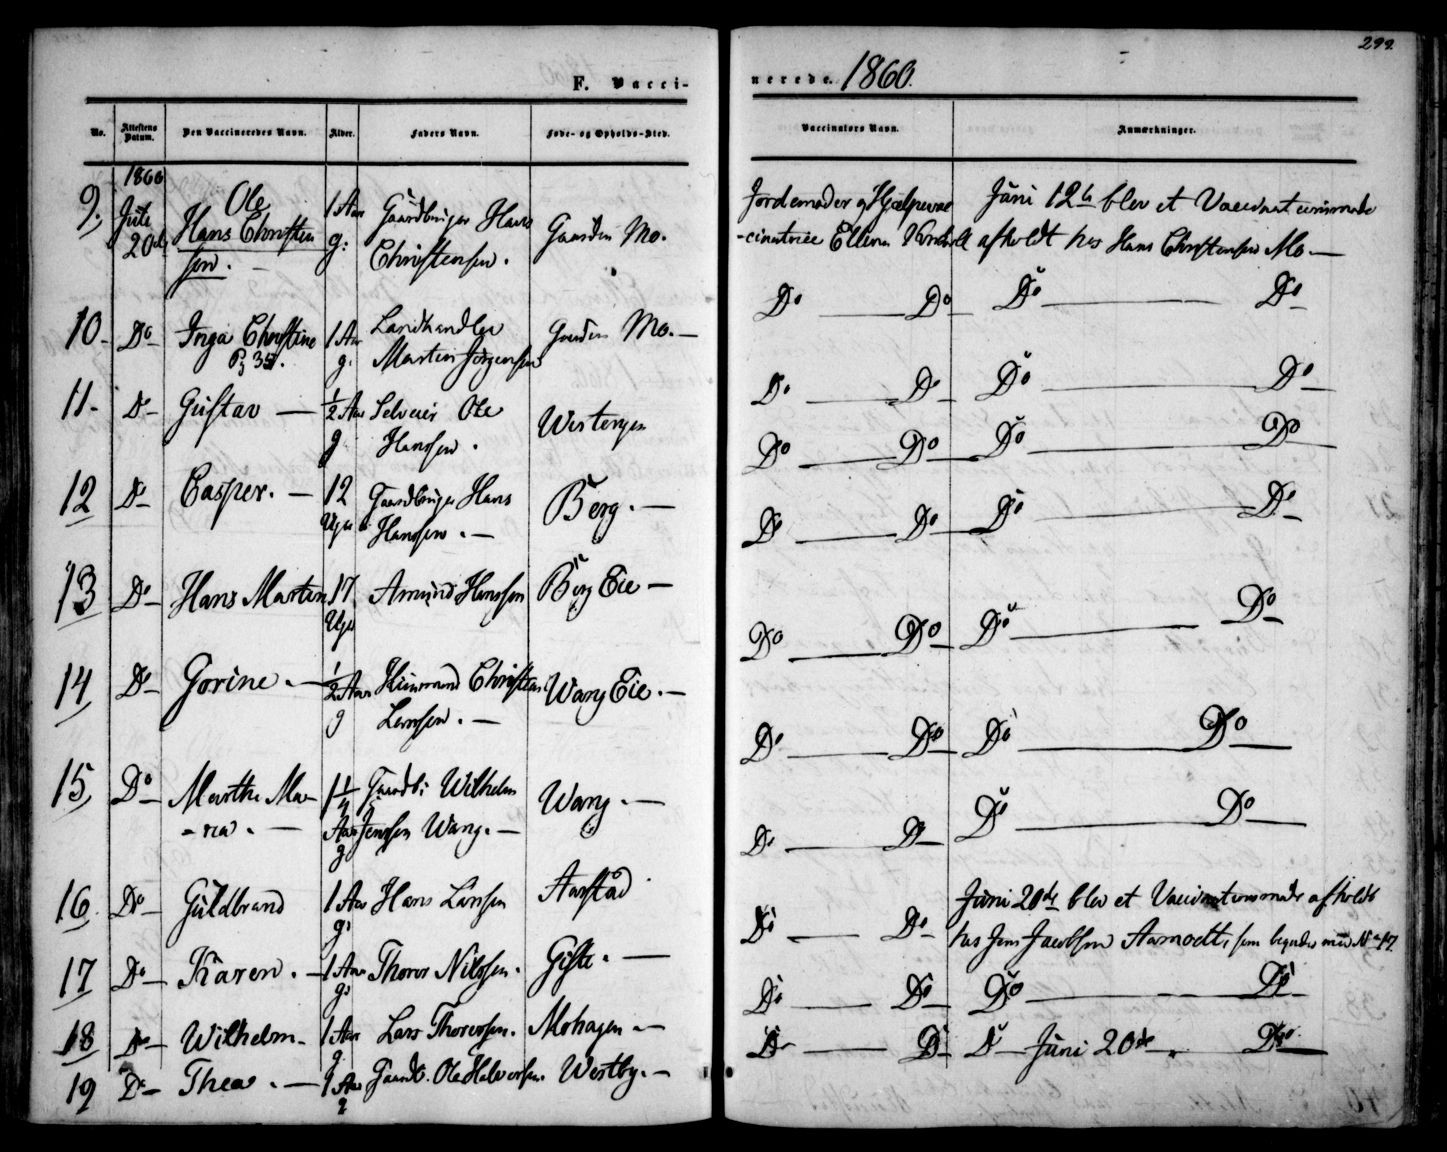 299.
F. Vacci-
nerede. 1860.
No.
Attestens Datum.
Den Vaccineredes Navn.
Alder.
Faders Navn.
Føde- og Opholds-Sted.
Vaccinators Navn.
Anmærkninger.
1860
9. Juli 20de Ole Hans Christensen. 1 Aar g: Gaardbruger Hans Christensen. Gaarden Mo.
Jordemoder og Hjælpevac-
-cinatrice Ellen
Juni 12te blev et Vaccinationsmøde
afholdt hos Hans Christensen Mo. —
10. Do Inga Christine 1 Aar g. Landhandler Martin Jørgensen Gaarden Mo. —
Do — Do — Do — Do
11. Do Gustav — 1/2 Aar g Selveier Ole Hanssen. Westengen
Do — Do — Do — Do
12 Do Casper. — 12 Uger Gaardbruger Hans Hanssen. — Berg. —
Do — Do — Do — Do
13 Do Hans Martin 17 Uger Amund Hanssen Berg Eie —
Do — Do — Do — Do
14 Do Gorine. — 1/2 Aar g Christian Larssen. — Wang Eie. —
Do — Do — Do — Do
15 Do Marthe Ma-
-ria. — 1 1/4 Aar g Gaardb: Wilhelm Jenssen Wang. — Wang. —
Do — Do — Do — Do
16 Do Guldbrand 1 Aar g: Hans Larssen Aarstad
Do — Do — Do — Do
17 Do Karen. — 1 Aar g: Thorer Nilssen. Gifte. —
Do — Do
Juni 20de blev et Vaccinationsmøde afholdt
hos Jens Jacobsen Aamodt, som begynder med No 17.
18 Do Wilhelm — 1 Aar g. Lars Thoressen. Mohagen —
Do — Do — Do — Do
19 Do Thea. — 1 Aar g Gaardb. Ole Halvorsen. Westby. —
Do — Do Do — Juni 20de — Do